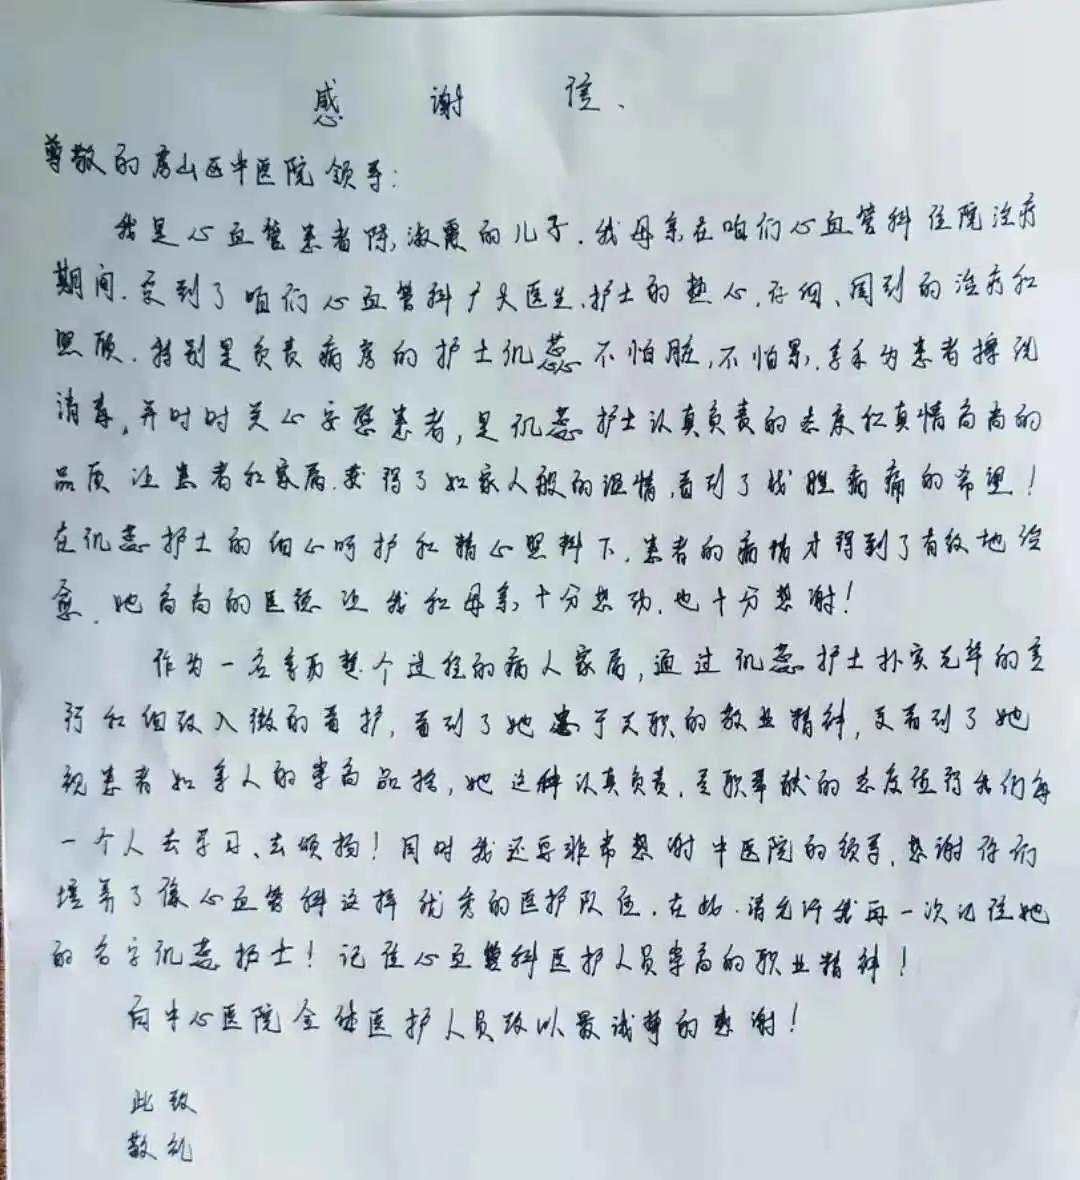 感谢信、
尊敬的房山区中医院领导:
我是心血管患者陈淑霞的儿子.我母亲在咱们心血管科住院治疗
期间.受到了咱们心血管科广大医生.护士的热心.仔细、周到的治疗和
照顾.特别是负责病房的护士仉蕊不怕脏,不怕累,亲手为患者擦洗
消毒,并时时关心安慰患者,是仉蕊护士认真负责的态度和真情高尚的
品质让患者和家属.获得了如家人般的温情,看到了战胜病痛的希望!
在仉蕊护士的细心呵护和精心照料下.患者的病情才得到了有效地治
愈.她高尚的医德让我和母亲十分感动.也十分感谢!
作为一名亲历整个过程的病人家属,通过仉蕊护士朴实无华的言
行和细致入微的看护,看到了她忠于天职的敬业精神,更看到了她
视患者如亲人的崇高品格,她这种认真负责.爱职奉献的态度值得我们每
一个人去学习、去颂扬!同时我还要非常感谢中医院的领导.感谢你们
培养了像心血管科这样优秀的医护队伍.在此.请允许我再一次记住她
的名字仉蕊护士!记住心血管科医护人员崇高的职业精神!
向中心医院全体医护人员致以最诚挚的感谢!
此致
敬礼